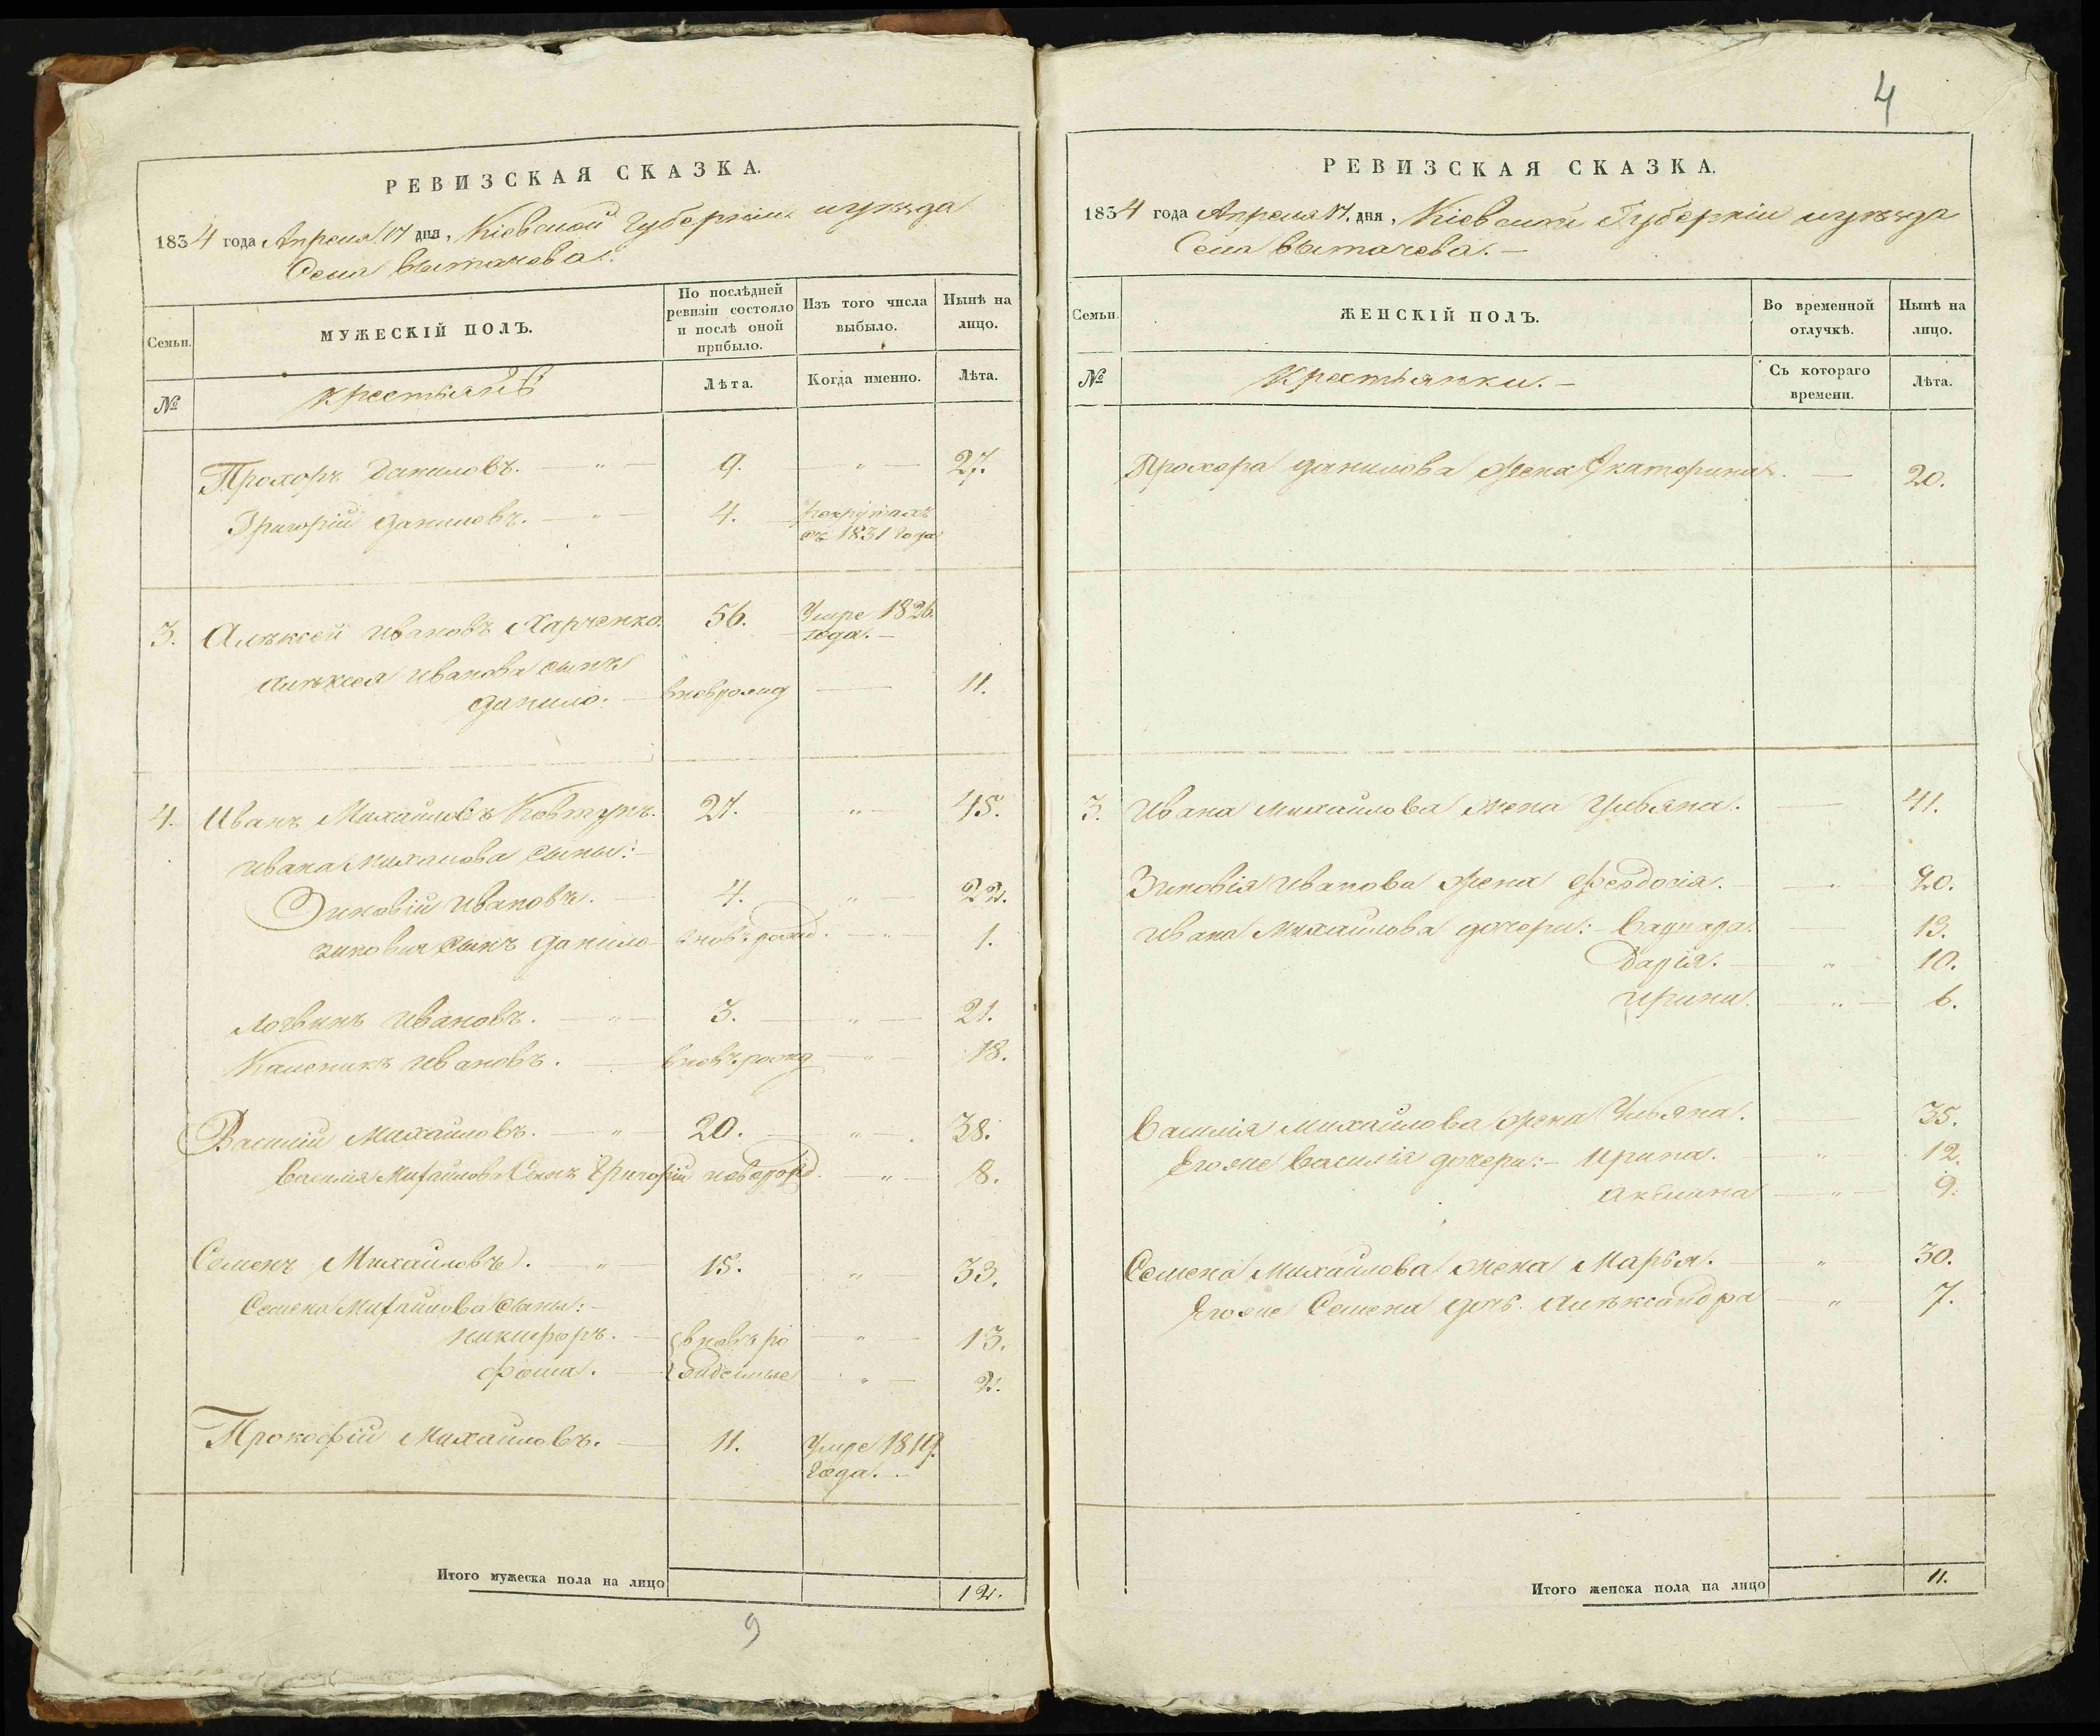 РЕВИЗСКАЯ СКАЗКА.
1834 года Апреля 17 дня, Кіевской Губерніи и уезда
Села Вытачева.
Семьи.
МУЖЕСКІЙ ПОЛЪ.
По послѣдней ревизіи состояло и послѣ оной прибыло.
Изъ того числа выбыло.
Нынѣ на лицо.
№
крестьянъ
Лѣта.
Когда именно.
Лѣта.
Прохоръ Даниловъ. — " — 9. — " — 27.
Григорій Даниловъ. — " — 4. рекрутахъ
съ 1831 года
3. Алексей Ивановъ Харченко. 56. Умре 1826.
года. —
Алексея Иванова сынъ
Данило. — вновьрожд — 11.
4. Иванъ Михайловъ Ковтунъ. 27. " — 45.
Ивана Михайлова сыны: —
Зиновій Ивановъ. — 4. " — 22.
Зиновия сынъ Данило — вновьрожд. — " — 1.
Логвинъ Ивановъ. — " — 3. — " — 21.
Каленикъ Ивановъ. — вновьрожд — " — 18.
Василій Михайловъ. — " — 20. — " — 38.
Василия Михайлова Сынъ Григорій новорожд. — " — 8.
Семенъ Михайловъ. — " — 15. " — 33.
Семена Михайлова сыны: —
Никифоръ. — вновь ро — " — 13.
Фома. — жденные — " — 2.
Прокофій Михайловъ. — 11. Умре 1819.
года. —
Итого мужеска пола на лицо
12.
9
4
РЕВИЗСКАЯ СКАЗКА.
1834 года Апреля 17. дня, Кіевской Губерніи и уезда
Села Вытачева. —
Семьи.
ЖЕНСКІЙ ПОЛЪ.
Во временной отлучкѣ.
Нынѣ на лицо.
№
Крестьянки. —
Съ котораго времени.
Лѣта.
Прохора Данилова жена Екатерина. — 20.
3. Ивана Михайлова жена Ульяна. — 41.
Зиновія Иванова жена Феодосія. — " 20.
Ивана Михайлова дочери: — Варвара. — 13.
Дарія. — " 10.
Ирина. — " — 6.
Василія Михайлова жена Ульяна. — 35.
Егоже Василія дочери: — Ирина. " 12.
Акилина — " — 9.
Семена Михайлова жена Марья. — " 30.
Егоже Семена дочь Александра — " — 7.
Итого женска пола на лицо
11.